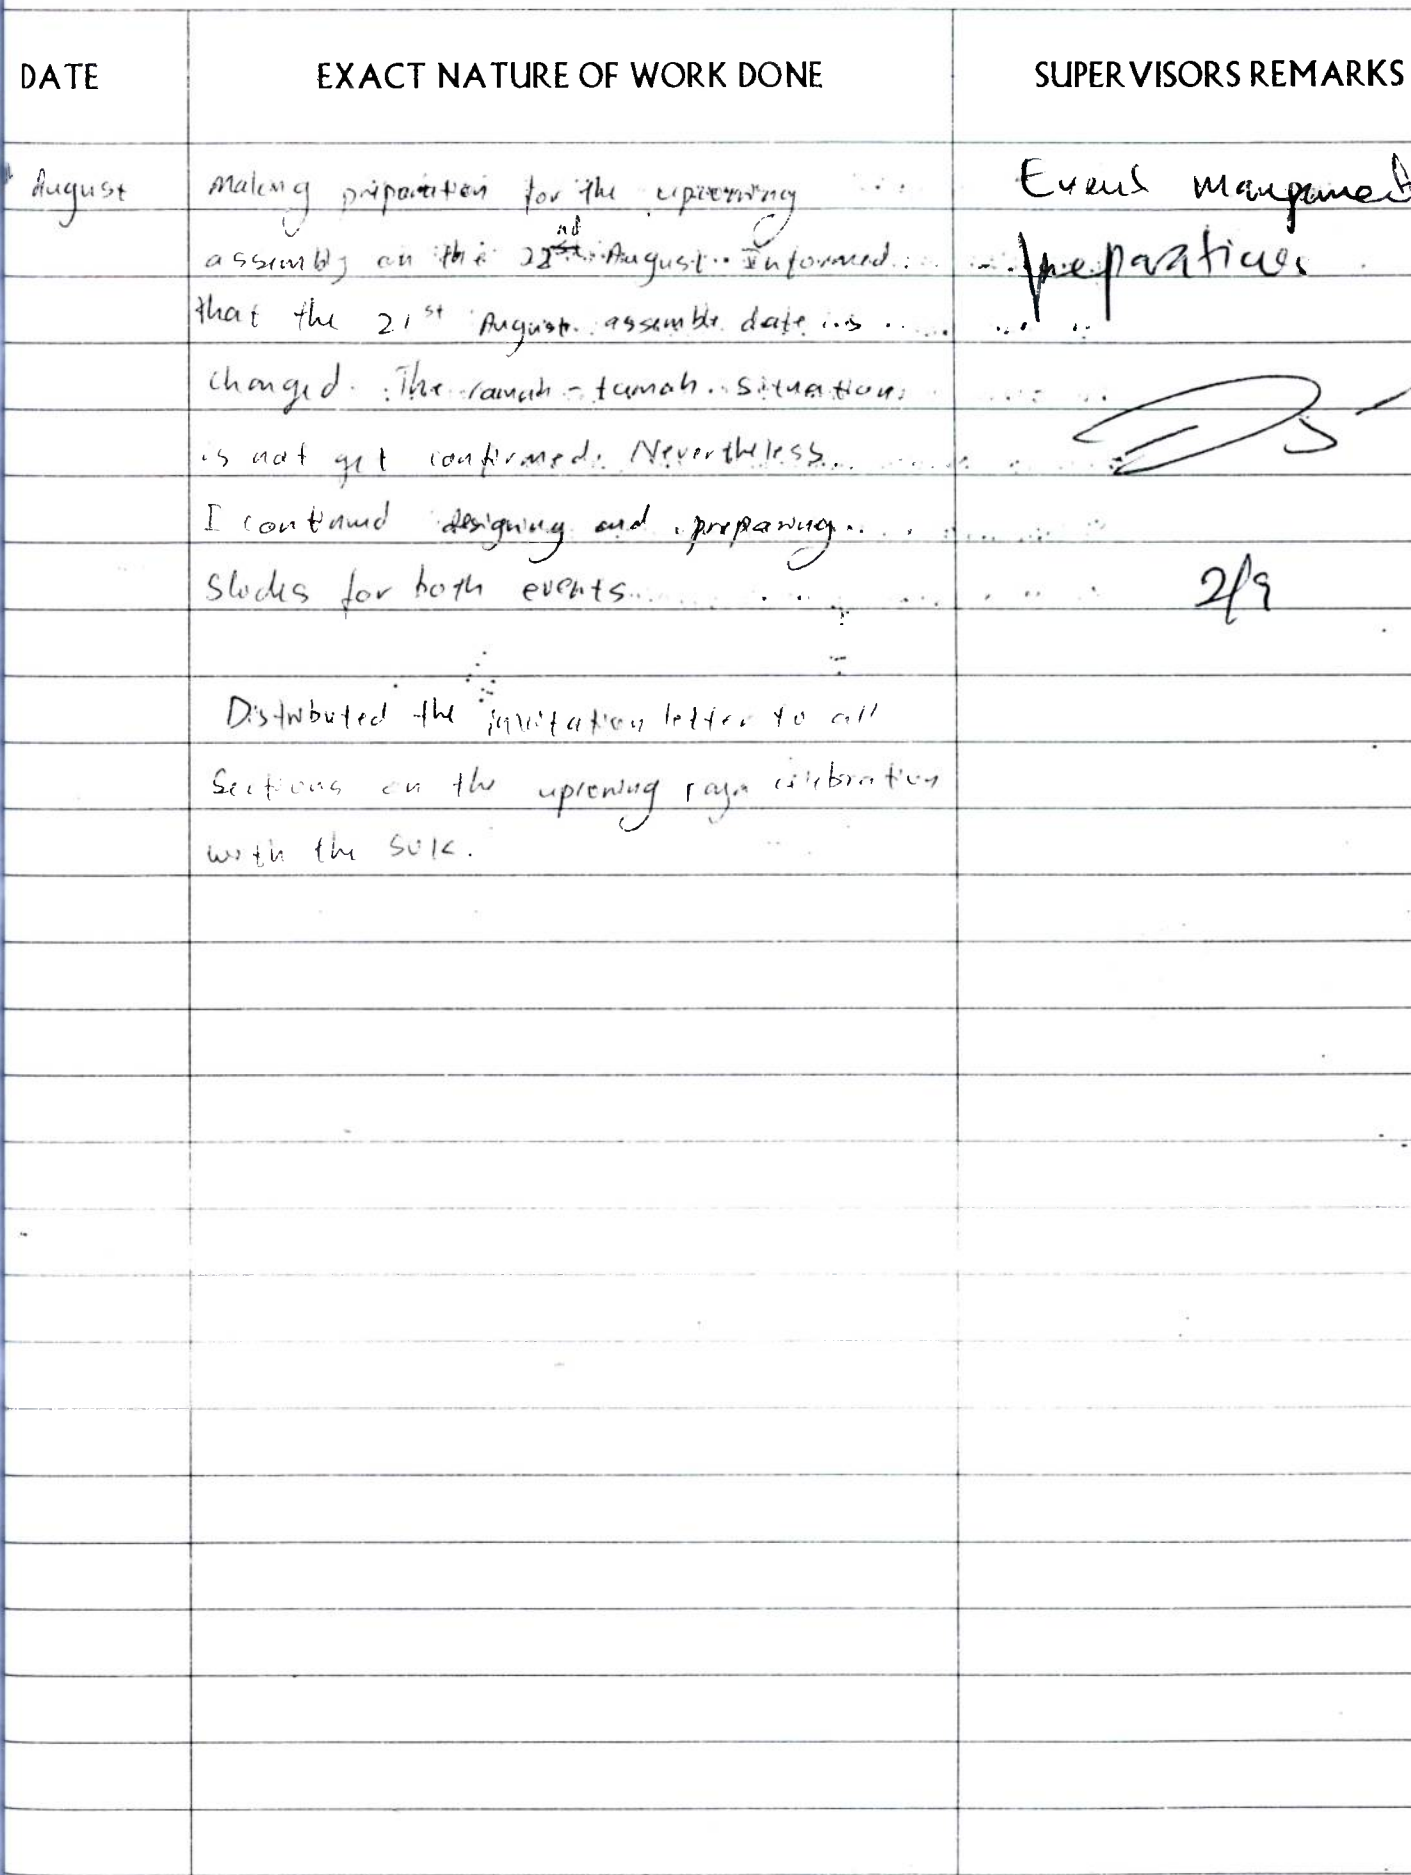 DATE EXACT NATURE OF WORK DONE SUPERVISORS REMARKS
August Making preparation for the upcoming Event
assembly on the 22nd August. Informed preparations
that the 21st August assemble date is
changed. The ramah-tamah situation
is not yet confirmed. Nevertheless
I continued designing and preparing
slides for both events 2/9
Distributed the invitation letter to all
sections on the upcoming raya celebration
with the SUK.